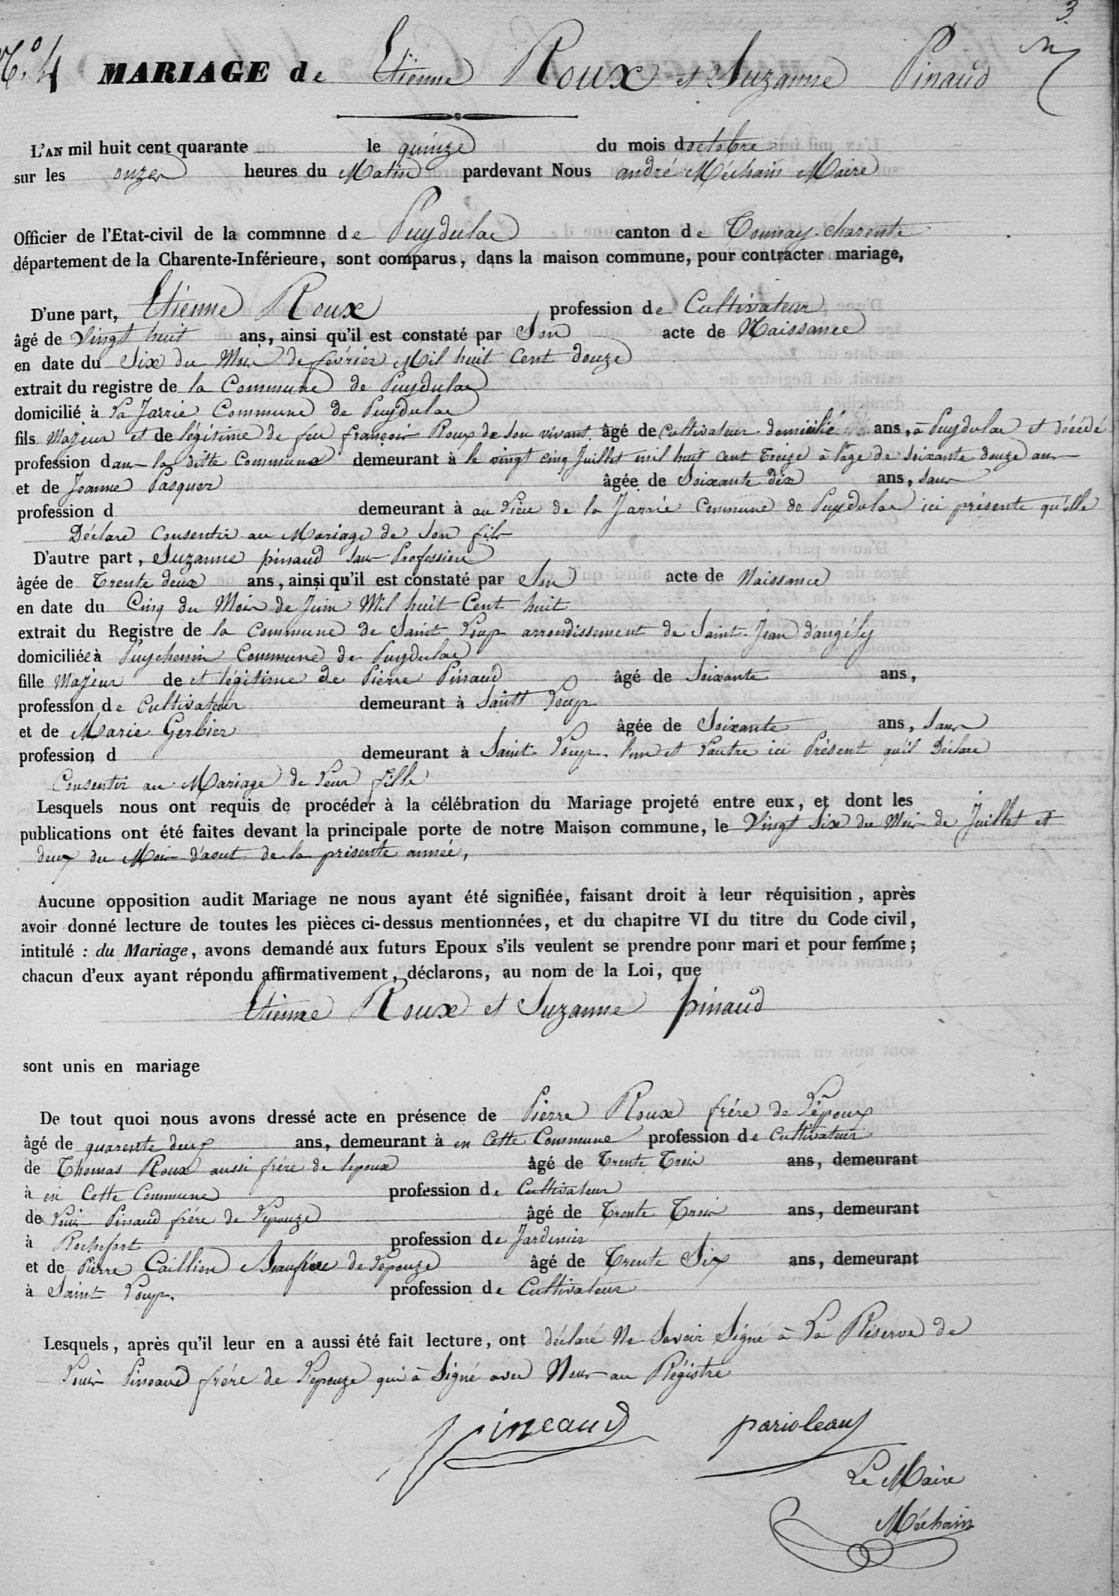 3
N.º 4 MARIAGE de Etienne Roux et Suzanne Pinaud
L'AN mil huit cent quarante le quinze du mois d'octobre
sur les onzes heures du Matin pardevant Nous andré Méchain Maire
Officier de l'Etat-civil de la commnne de Puydulac canton de Tonnay-charente
département de la Charente-Inférieure, sont comparus, dans la maison commune, pour contracter mariage,
D'une part, Etienne Roux profession de Cultivateur
âgé de vingt huit ans, ainsi qu'il est constaté par Son acte de Naissance
en date du Six du Mois de février Mil huit Cent douze
extrait du registre de la Commune de Puydulac
domicilié à La Jarrie Commune de Puydulac
fils Majeur et de légitime de feu françois Roux de Son vivant âgé de Cultivateur domicilié ans, à Puydulac et décédé
profession dans la ditte Commune demeurant à le vingt cinq Juillet mil huit cent treize à l'age de soixante douze ans
et de Jeanne Pasquer âgée de Soixante dix ans, sans
profession d demeurant à au Lieu de la Jarrie Commune de Puydulac ici présente qu'elle
Déclare Consentir au Mariage de Son fils
D'autre part, Suzanne pinaud sans Profession
âgée de Trente deux ans, ainsi qu'il est constaté par Son acte de Naissance
en date du Cinq du Mois de Juin Mil huit Cent huit
extrait du Registre de la Commune de Saint Loup arrondissement de Saint-Jean d'angély
domiciliée à Puychenin Commune de Puydulac
fille Majeur de et légitime de Pierre Pinaud âgé de Soixante ans,
profession de Cultivateur demeurant à Saint Loup
et de Marie Gerbier âgée de Soixante ans, Sans
profession d demeurant à Saint Loup. l'un et l'autre ici Présent qu'il Déclare
Consentir au Mariage de Leur fille
Lesquels nous ont requis de procéder à la célébration du Mariage projeté entre eux, et dont les
publications ont été faites devant la principale porte de notre Maison commune, le Vingt Six du Mois de Juillet et
deux du Mois d'aout de la présente année,
Aucune opposition audit Mariage ne nous ayant été signifiée, faisant droit à leur réquisition, après
avoir donné lecture de toutes les pièces ci-dessus mentionnées, et du chapitre VI du titre du Code civil,
intitulé : du Mariage, avons demandé aux futurs Epoux s'ils veulent se prendre pour mari et pour femme ;
chacun d'eux ayant répondu affirmativement, déclarons, au nom de la Loi, que
Etienne Roux et Suzanne pinaud
sont unis en mariage
De tout quoi nous avons dressé acte en présence de Pierre Roux frére de L'époux
âgé de quarente deux ans, demeurant à en Cette Commune profession de Cultivateur
de Thomas Roux aussi frére de lepoux âgé de Trente Trois ans, demeurant
à en Cette Commune profession de Cultivateur
de Louis Pinaud frére de l'épouze âgé de Trente Trois ans, demeurant
à Rochefort profession de Jardinier
et de Pierre Caillion Beaufrére de L'épouze âgé de Trente Six ans, demeurant
à Saint Loup. profession de Cultivateur
Lesquels, après qu'il leur en a aussi été fait lecture, ont déclaré Ne Savoir Signé à La Réserve de
Louis Pineaud frére de l'épouze qui à Signé avec Nous au Régistre
pineaud parioleau
Le Maire
Méchain